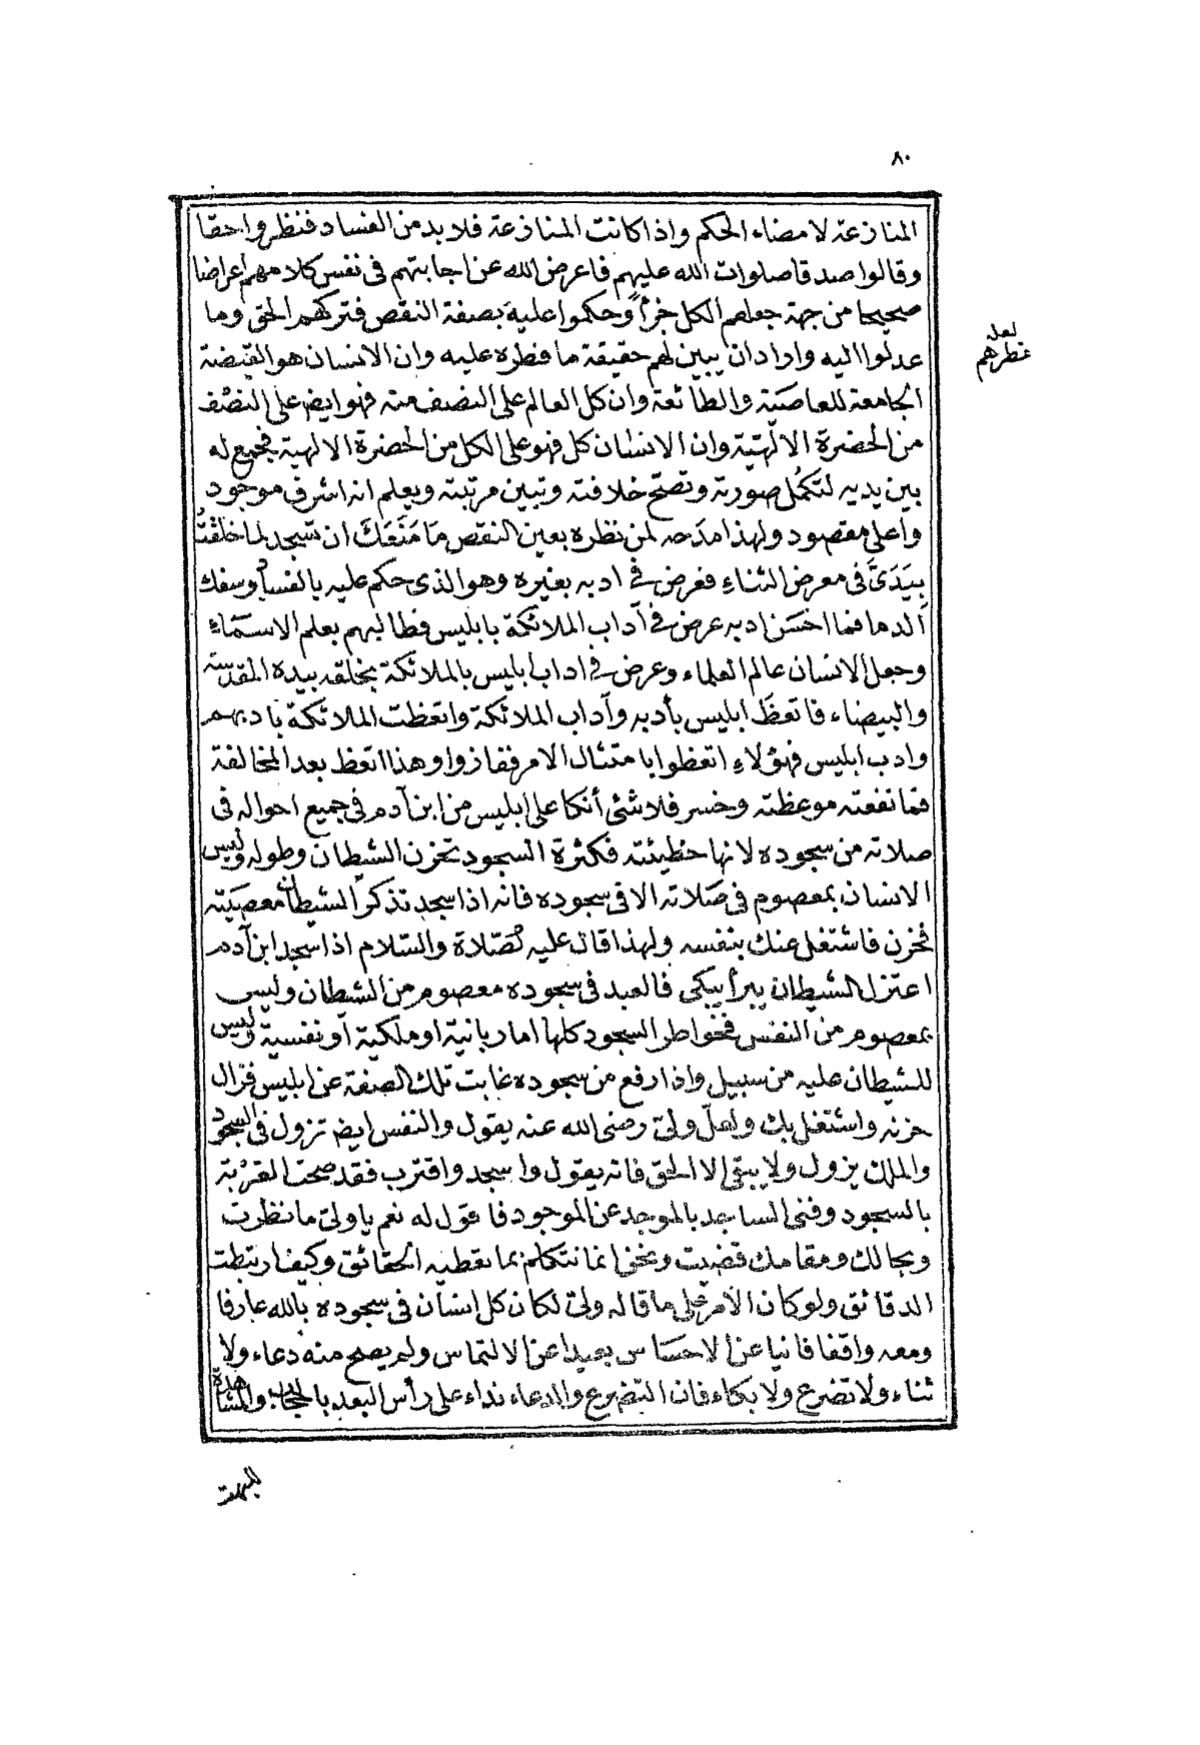 ٨٠
المنازعة لامضاء الحكم واذا كانت المنازعة فلا بد من الفساد فنظروا حقا
وقالوا صدقا صلوات الله عليهم فاعرض الله عن اجابتهم في نفس كلامهم اعراضا
صحيحا من جهة جعلهم الكل جزأ وحكموا عليه بصفة النقص فتركهم الحق وما
عدلوا اليه واراد ان يبين لهم حقيقة ما فطره عليه وان الانسان هو القبضة
لعل
نظرهم
الجامعة للعاصية والطائعة وان كل العالم على النصف منه فهو ايضا على النصف
من الحضرة الالهية وان الانسان كل فهو على الكل من الحضرة الالهية فجمع له
بين يديه لتكمل صورته وتصح خلافته وتبين مرتبته ويعلم انه اشرف موجود
واعلى مقصود ولهذا مدحه لمن نظره بعين النقص مَا مَنَعَكَ ان تسجد لما خلقتُ
بِيَدَيَّ في معرض الثناء فعرض في ادبه بغيره وهو الذي حكم عليه بالفساد وسفك
الدما فما احسن ادبه عرض في آداب الملائكة بابليس فطالبهم بعلم الاسماء
وجعل الانسان عالم العلماء وعرض في اداب ابليس بالملائكة بخلقه بيده المقدسة
والبيضاء فاتعظ ابليس بأدبه وآداب الملائكة واتعظت الملائكة بادبهم
وادب ابليس فهؤلاء اتعظوا بامتثال الامر ففازوا وهذا اتعظ بعد المخالفة
فما نفعته موعظته وخسر فلا شئ أنكا على ابليس من ابن آدم في جميع احواله في
صلاته من سجوده لانها خطيئته فكثرة السجود تحزن الشيطان وطوله وليس
الانسان بمعصوم في صلاته الا في سجوده فانه اذا سجد تذكر الشيطان معصيته
فحزن فاشتغل عنك بنفسه ولهذا قال عليه الصلاة والسلام اذا سجد ابن آدم
اعتزل الشيطان يبرأ يبكي فالعبد في سجوده معصوم من الشيطان وليس
بمعصوم من النفس فخواطر السجود كلها اما ربانية او ملكية أو نفسية وليس
للشيطان عليه من سبيل واذا رفع من سجوده غابت تلك الصفة عن ابليس فزال
حزنه واشتغل بك ولعلّ وليّ رضى الله عنه يقول والنفس ايضا تزول في السجود
والملك يزول ولا يبقى الا الحق فانه يقول واسجد واقترب فقد صحت القربة
بالسجود وفنى الساجد بالموجد عن الموجود فاقول له نعم يا ولىّ ما نظرت
وبحالك ومقامك قضيت ونحن انما نتكلم بما تعطيه الحقائق وكيف ارتبطت
الدقائق ولو كان الأمر على ما قاله ولىّ لكان كل انسان في سجوده بالله عارفا
ومعه واقفا فانيا عن الاحساس بعيدا عن الالتماس ولم يصح منه دعاء ولا
ثناء ولا تضرع ولا بكاء فان التضرع والدعاء نداء على رأس البعد بالحجاب والمشاهدة